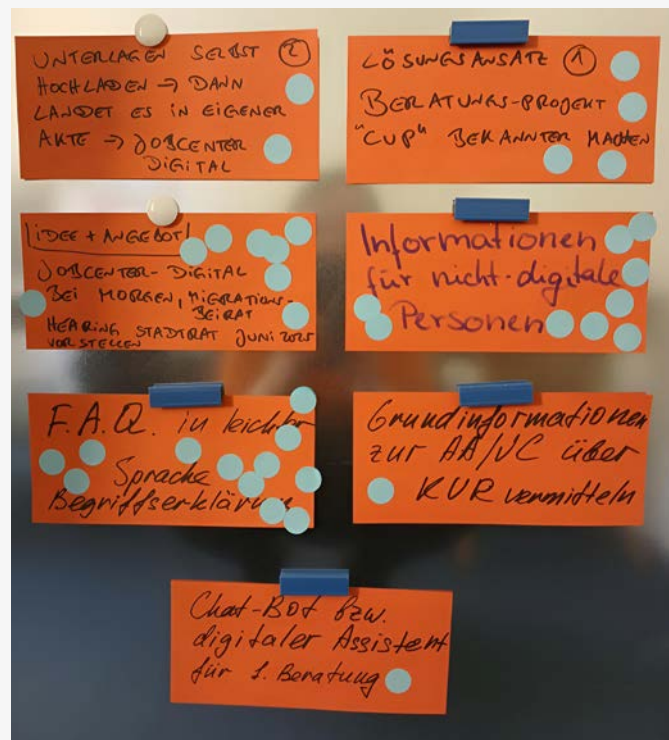 UNTERLAGEN SELBST ②
HOCHLADEN → DANN
LANDET ES IN EIGENER
AKTE → JOBCENTER
DIGITAL
LÖSUNGSANSATZ ①
BERATUNGS-PROJEKT
"CUP" BEKANNTER MACHEN
IDEE + ANGEBOT
JOBCENTER-DIGITAL
BEI MORGEN, MIGRATIONS-
BEIRAT
HEARING STADTRAT JUNI 2025
VORSTELLEN
Informationen
für nicht-digitale
Personen
F.A.Q. in leichter
Sprache
Begriffserklärung
Grundinformationen
zur AA/JC über
KUR vermitteln
Chat-Bot bzw.
digitaler Assistent
für 1. Beratung